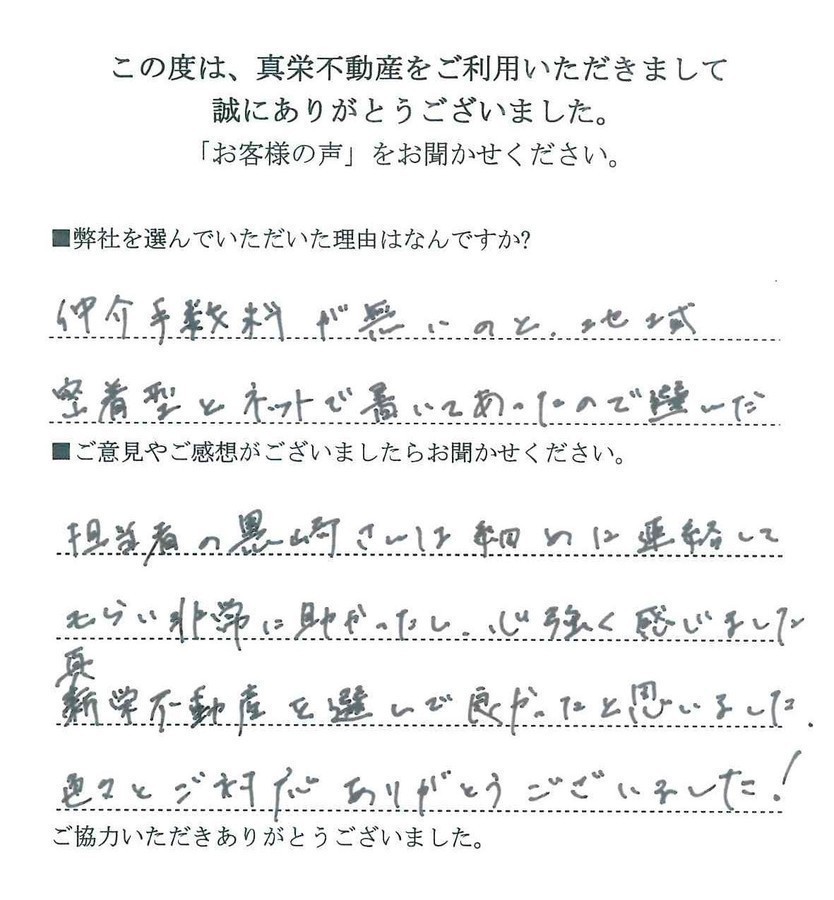 この度は、真栄不動産をご利用いただきまして
誠にありがとうございました。
「お客様の声」をお聞かせください。
■弊社を選んでいただいた理由はなんですか?
仲介手数料が無いのと、地域
密着型とネットで書いてあったので選んだ
■ご意見やご感想がございましたらお聞かせください。
担当者の黒崎さんは細めに連絡して
もらい非常に助かったし、心強く感じました
真
新栄不動産を選んで良かったと思いました.
色々とご対応ありがとうございました!
ご協力いただきありがとうございました。